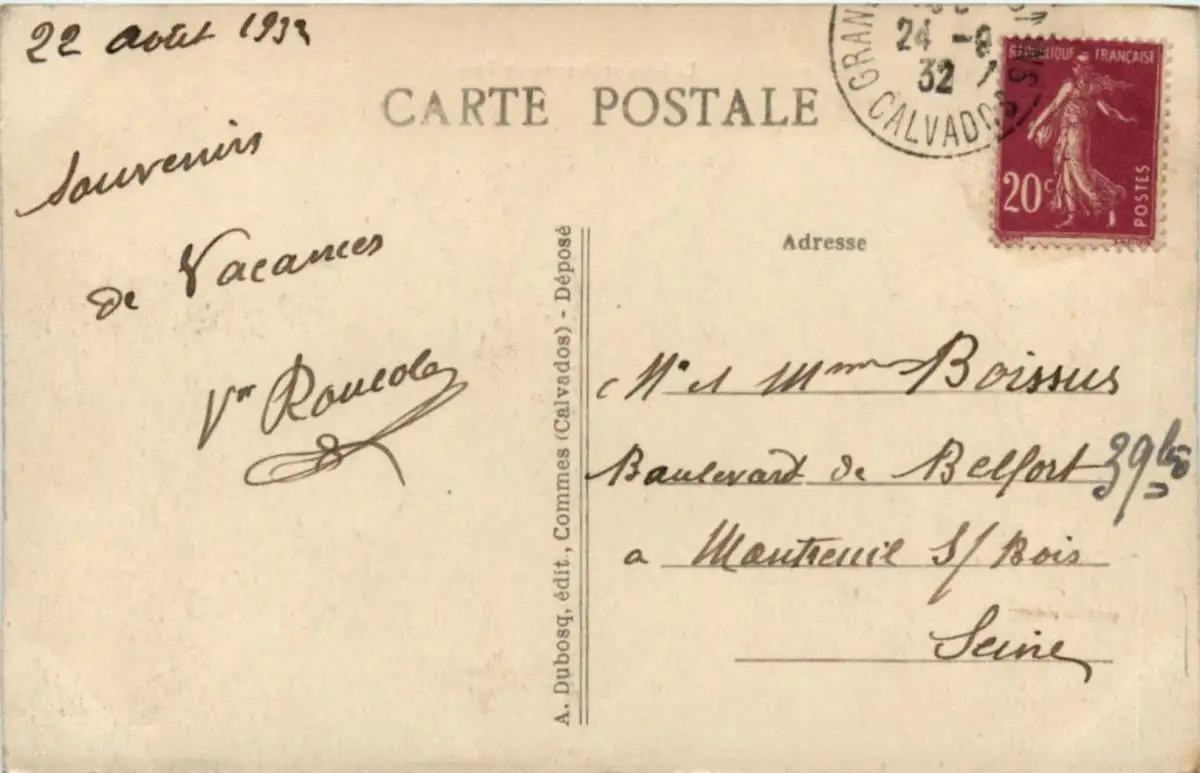 22 août 1932
CARTE POSTALE
Souvenirs
de Vacances
A. Dubosq, édit., Commes (Calvados) - Déposé
GRAN
24 -8
32
CALVADOS
REPUBLIQUE FRANÇAISE
20c
POSTES
Adresse
Mr et Mme Boissus
Baulevard de Belfort 39
a Montreuil S/Bois
Seine